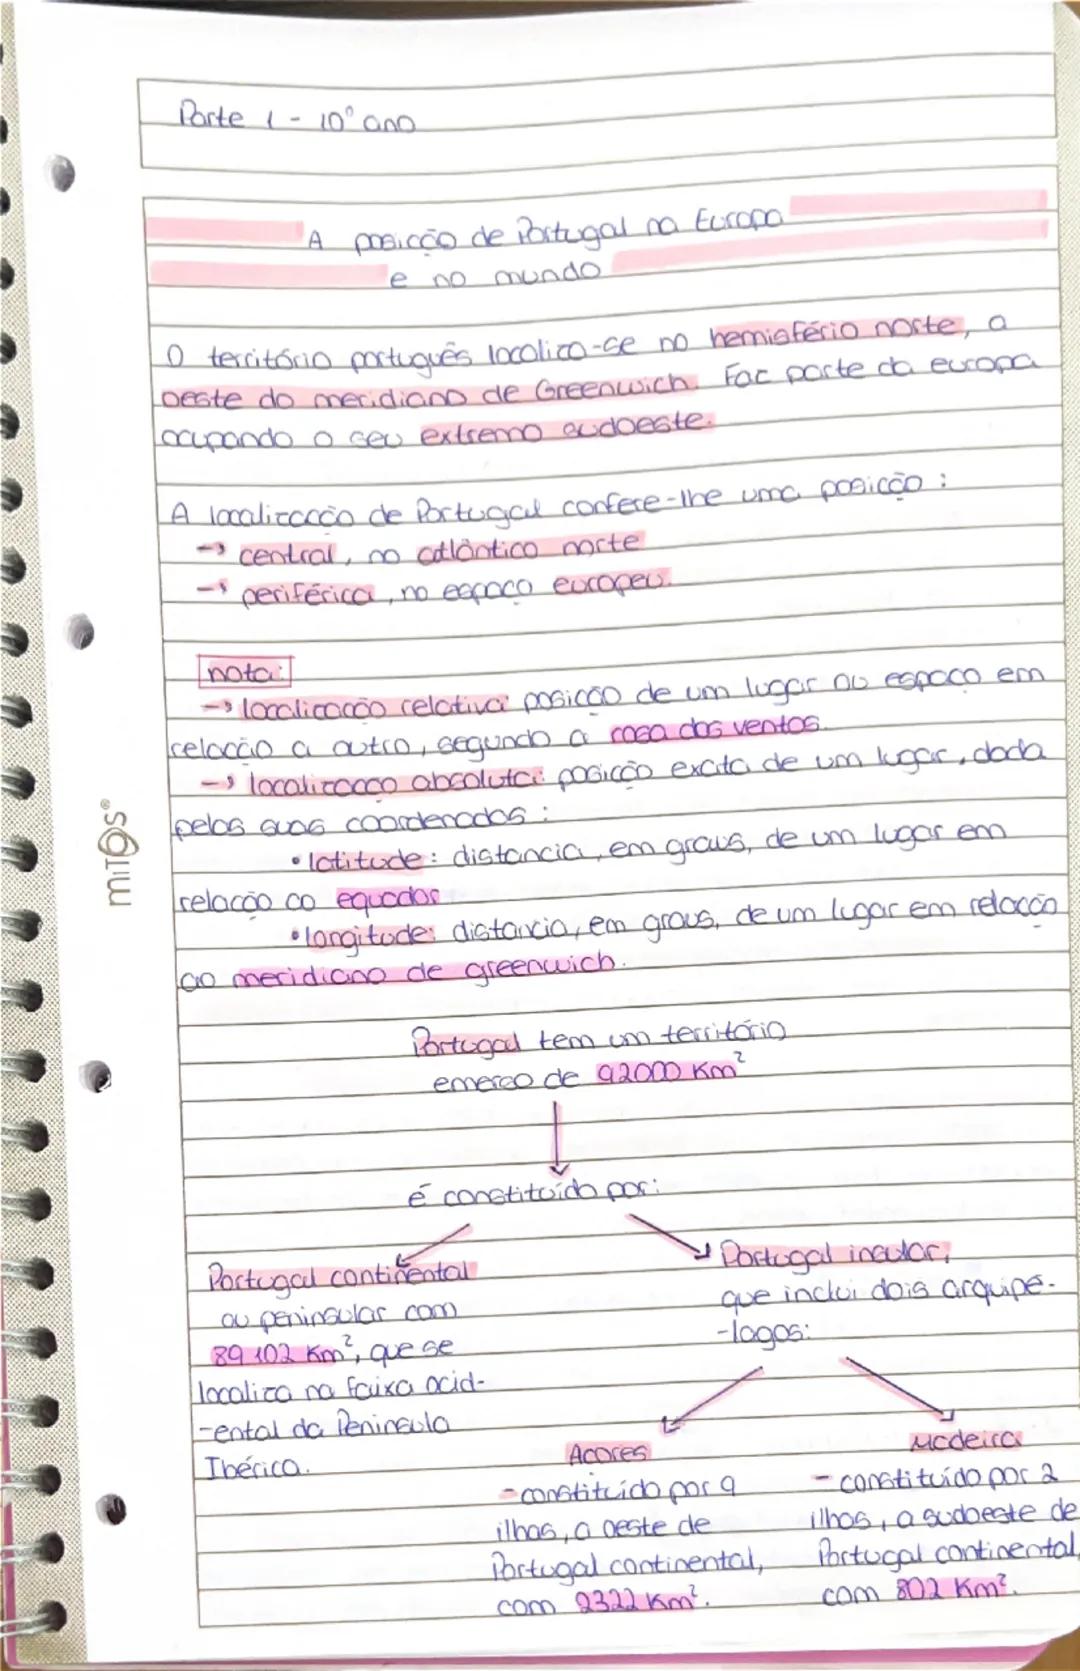 Parte 1 - 10º ano
A posição de Portugal na Europa
e no mundo
O território português localiza-se no hemisfério norte, a
oeste do meridiano de Greenwich. Faz parte da europa
ocupando o seu extremo sudoeste.
A localização de Portugal confere-lhe uma posição :
→ central, no atlântico norte
→ periférica, no espaço europeu.
nota:
→ localização relativa: posição de um lugar ou espaço em
relação a outro, segundo a rosa dos ventos.
→ localização absoluta: posição exata de um lugar, dada
pelas suas coordenadas :
• latitude: distancia, em graus, de um lugar em
relação ao equador
• longitude: distancia, em graus, de um lugar em relação
ao meridiano de greenwich.
Portugal tem um território
emerso de 92000 Km²
é constituído por:
Portugal continental
ou peninsular com
89 102 Km², que se
localiza na faixa ocid-
-ental da Peninsula
Ibérica.
Portugal insular,
que inclui dois arquipé-
-lagos:
Açores
- constituído por 9
ilhas, a oeste de
Portugal continental,
com 2322 Km².
Madeira
- constituído por 2
ilhas, a sudoeste de
Portugal continental,
com 802 Km².
MITOS®